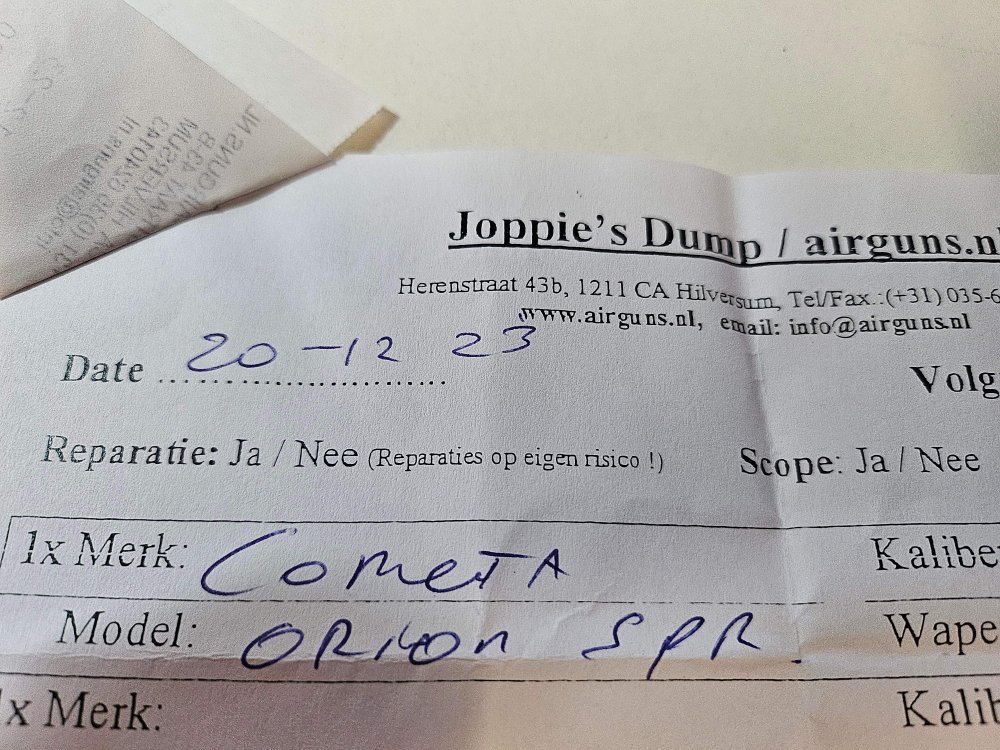 Joppie's Dump / airguns.nl
Herenstraat 43b, 1211 CA Hilversum, Tel/Fax.:(+31) 035-6
www.airguns.nl, email: info@airguns.nl
Date 20-12 23
Volg
Reparatie: Ja / Nee (Reparaties op eigen risico !)
Scope: Ja / Nee
1x Merk: COMETA
Kalibe
Model: ORION SPR.
Wape
1x Merk:
Kalib